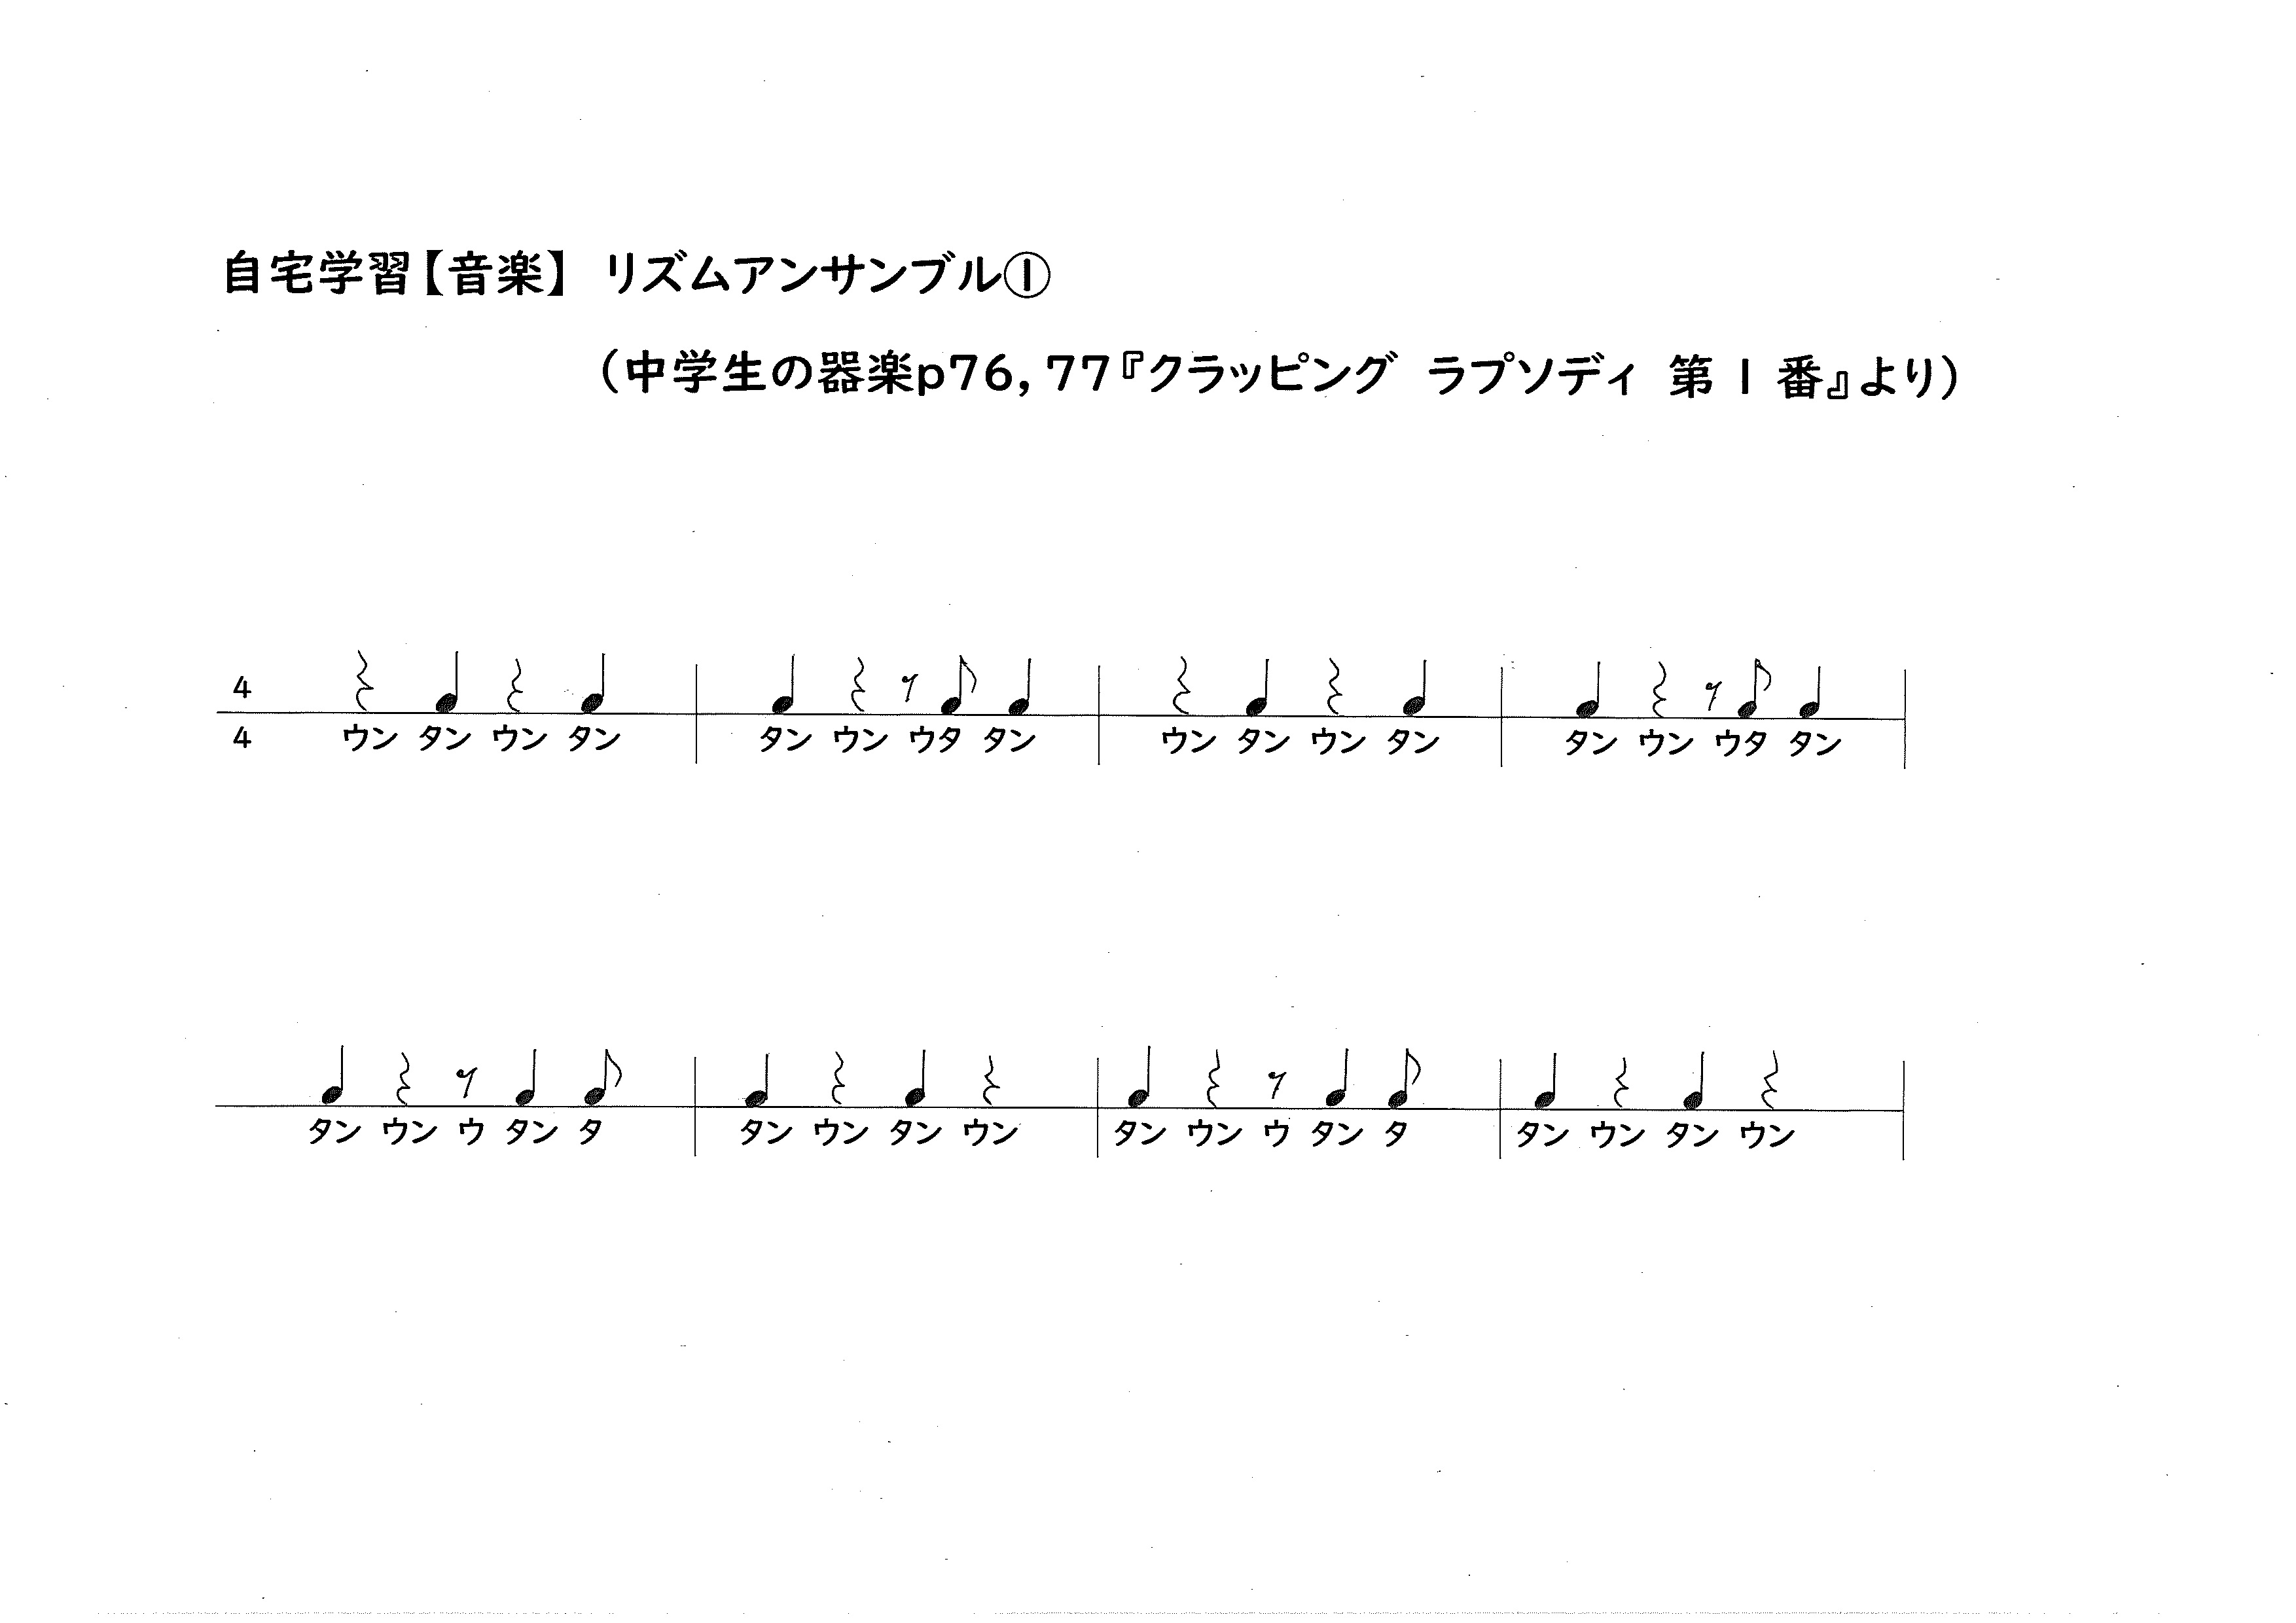 自宅学習【音楽】 リズムアンサンブル①
（中学生の器楽p76，77『クラッピング ラプソディ 第１番』より）
4
4
ウン タン ウン タン タン ウン ウタ タン ウン タン ウン タン タン ウン ウタ タン
タン ウン ウ タン タ タン ウン タン ウン タン ウン ウ タン タ タン ウン タン ウン